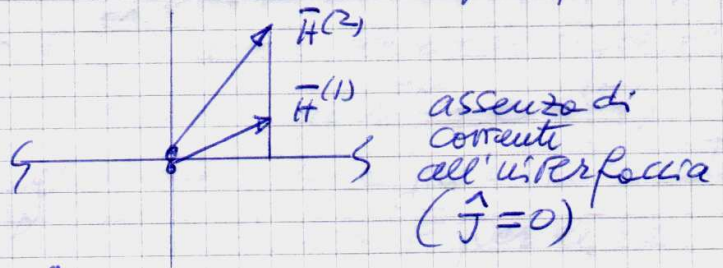 H̄⁽²⁾
H̄⁽¹⁾
assenza di
corrente
all'interfaccia
(Ĵ=0)